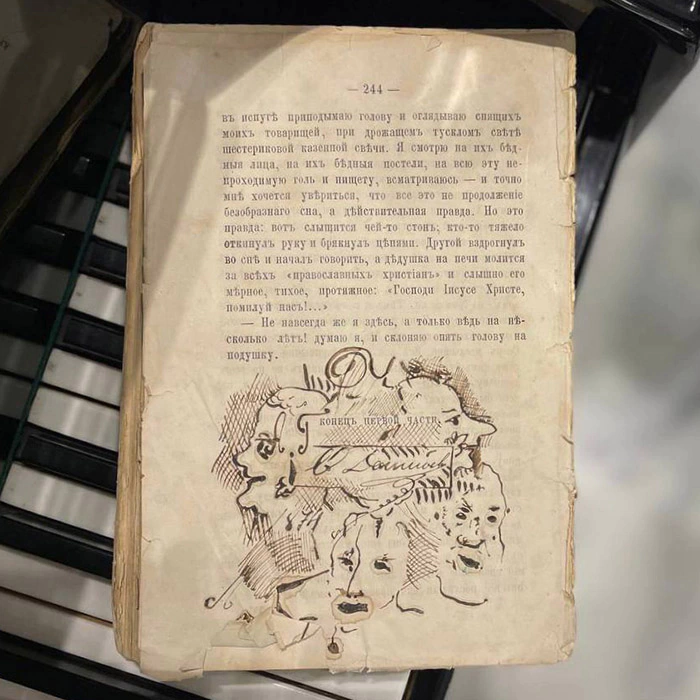 — 244 —
въ испугѣ приподымаю голову и оглядываю спящихъ
моихъ товарищей, при дрожащемъ тускломъ свѣтѣ
шестериковой казенной свѣчи. Я смотрю на ихъ бѣд-
ныя лица, на ихъ бѣдныя постели, на всю эту не-
проходимую голь и нищету, всматриваюсь — и точно
мнѣ хочется увѣриться, что все это не продолженіе
безобразнаго сна, а дѣйствительная правда. Но это
правда: вотъ слышится чей-то стонъ; кто-то тяжело
откинулъ руку и брякнулъ цѣпями. Другой вздрогнулъ
во снѣ и началъ говорить, а дѣдушка на печи молится
за всѣхъ «православныхъ христіанъ» и слышно его
мѣрное, тихое, протяжное: «Господи Іисусе Христе,
помилуй насъ!...»
— Не навсегда же я здѣсь, а только вѣдь на нѣ-
сколько лѣтъ! думаю я, и склоняю опять голову на
подушку.
КОНЕЦЪ ПЕРВОЙ ЧАСТИ.